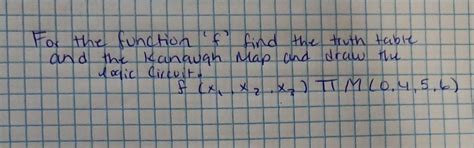 For the function 'f' find the truth table
and the Kanaugh Map and draw the
logic circuit.
f (x₁, x₂, x₃) ΠM(0,4,5,6)